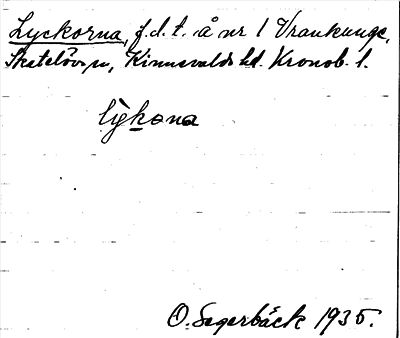 Lyckorna, f.d.t. å nr 1 Vrankunge,
Skatelövs sn, Kinnevalds hd. Kronob. l.
lykona
O. Segerbäck 1935.